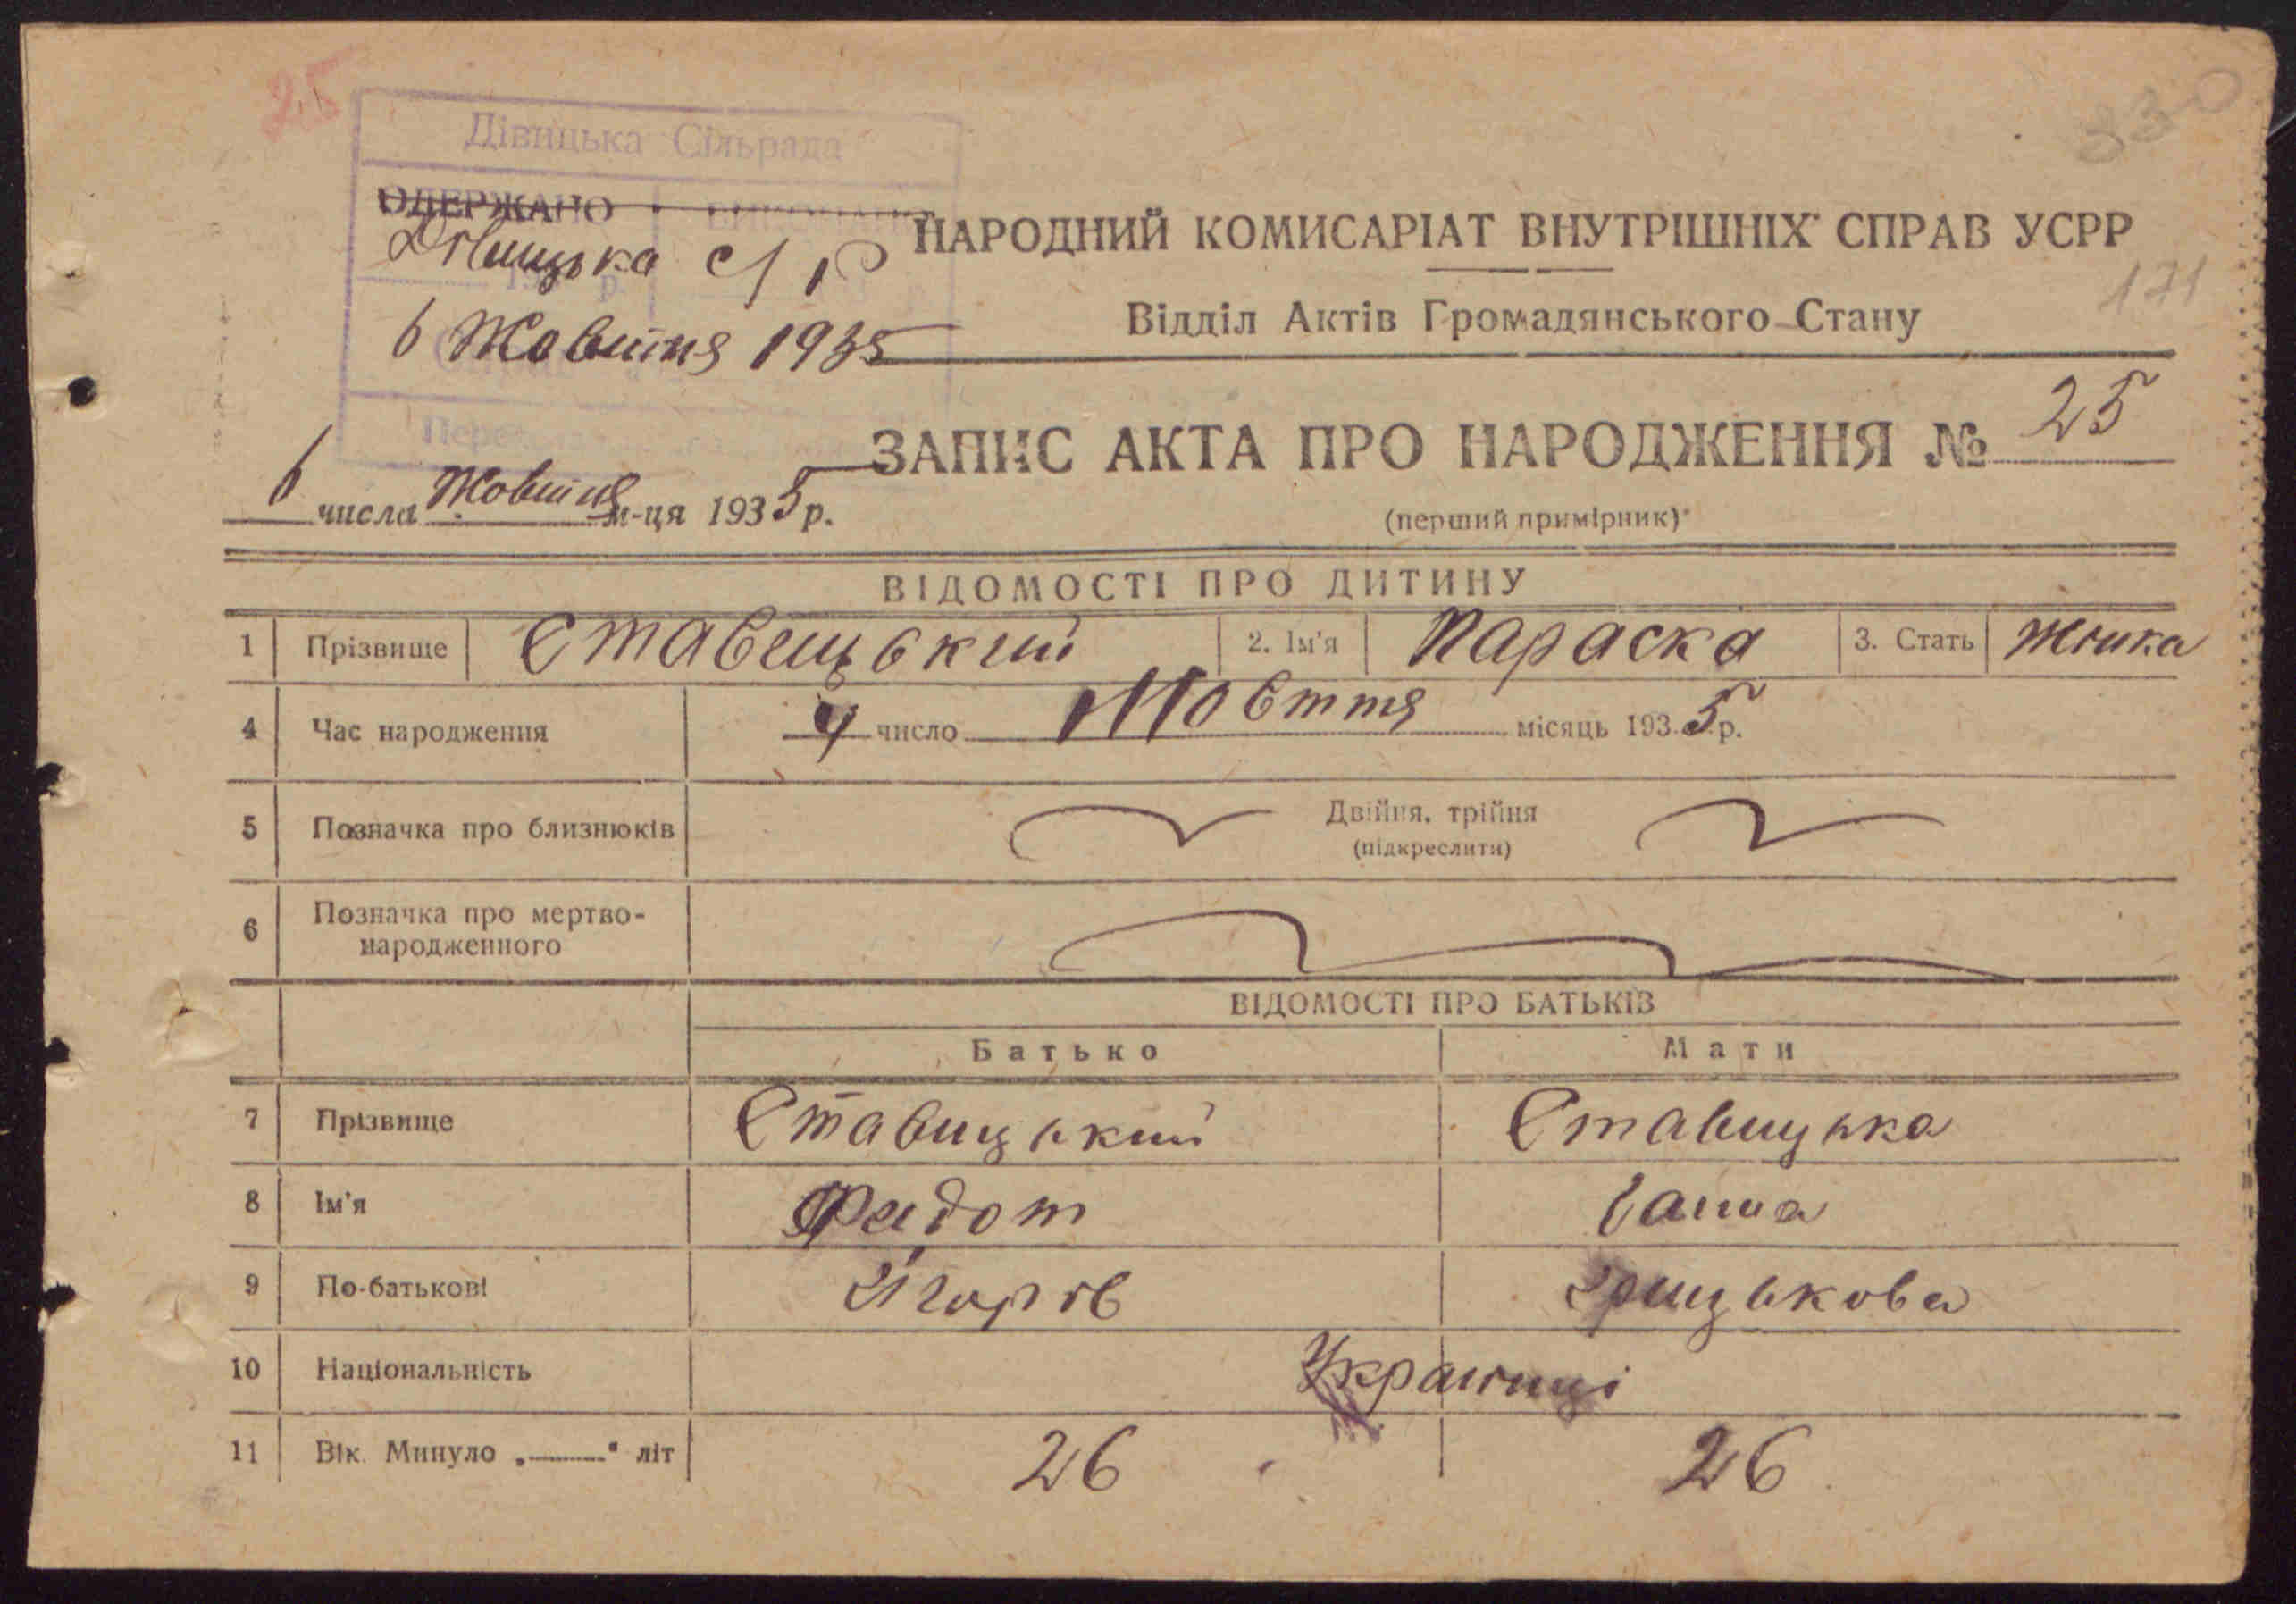 25
330
Дівицька Сільрада
ОДЕРЖАНО
Дівицька с/р
НАРОДНИЙ КОМИСАРІАТ ВНУТРІШНІХ СПРАВ УСРР
171
6 Жовтня 1935
Відділ Актів Громадянського Стану
ЗАПИС АКТА ПРО НАРОДЖЕННЯ № 25
6 числа Жовтня м-ця 1935 р.
(перший примірник)
ВІДОМОСТІ ПРО ДИТИНУ
1 Прізвище Ставицький 2. Ім'я Параска 3. Стать Жінка
4 Час народження 4 число Жовття місяць 1935 р.
5 Позначка про близнюків Двійня, трійня
(підкреслити)
6 Позначка про мертво-
народженного
ВІДОМОСТІ ПРО БАТЬКІВ
Батько Мати
7 Прізвище Ставицький Ставицька
8 Ім'я Федот Ганна
9 По-батькові Ігорів Грицькова
10 Національність Українці
11 Вік. Минуло „——" літ 26 26